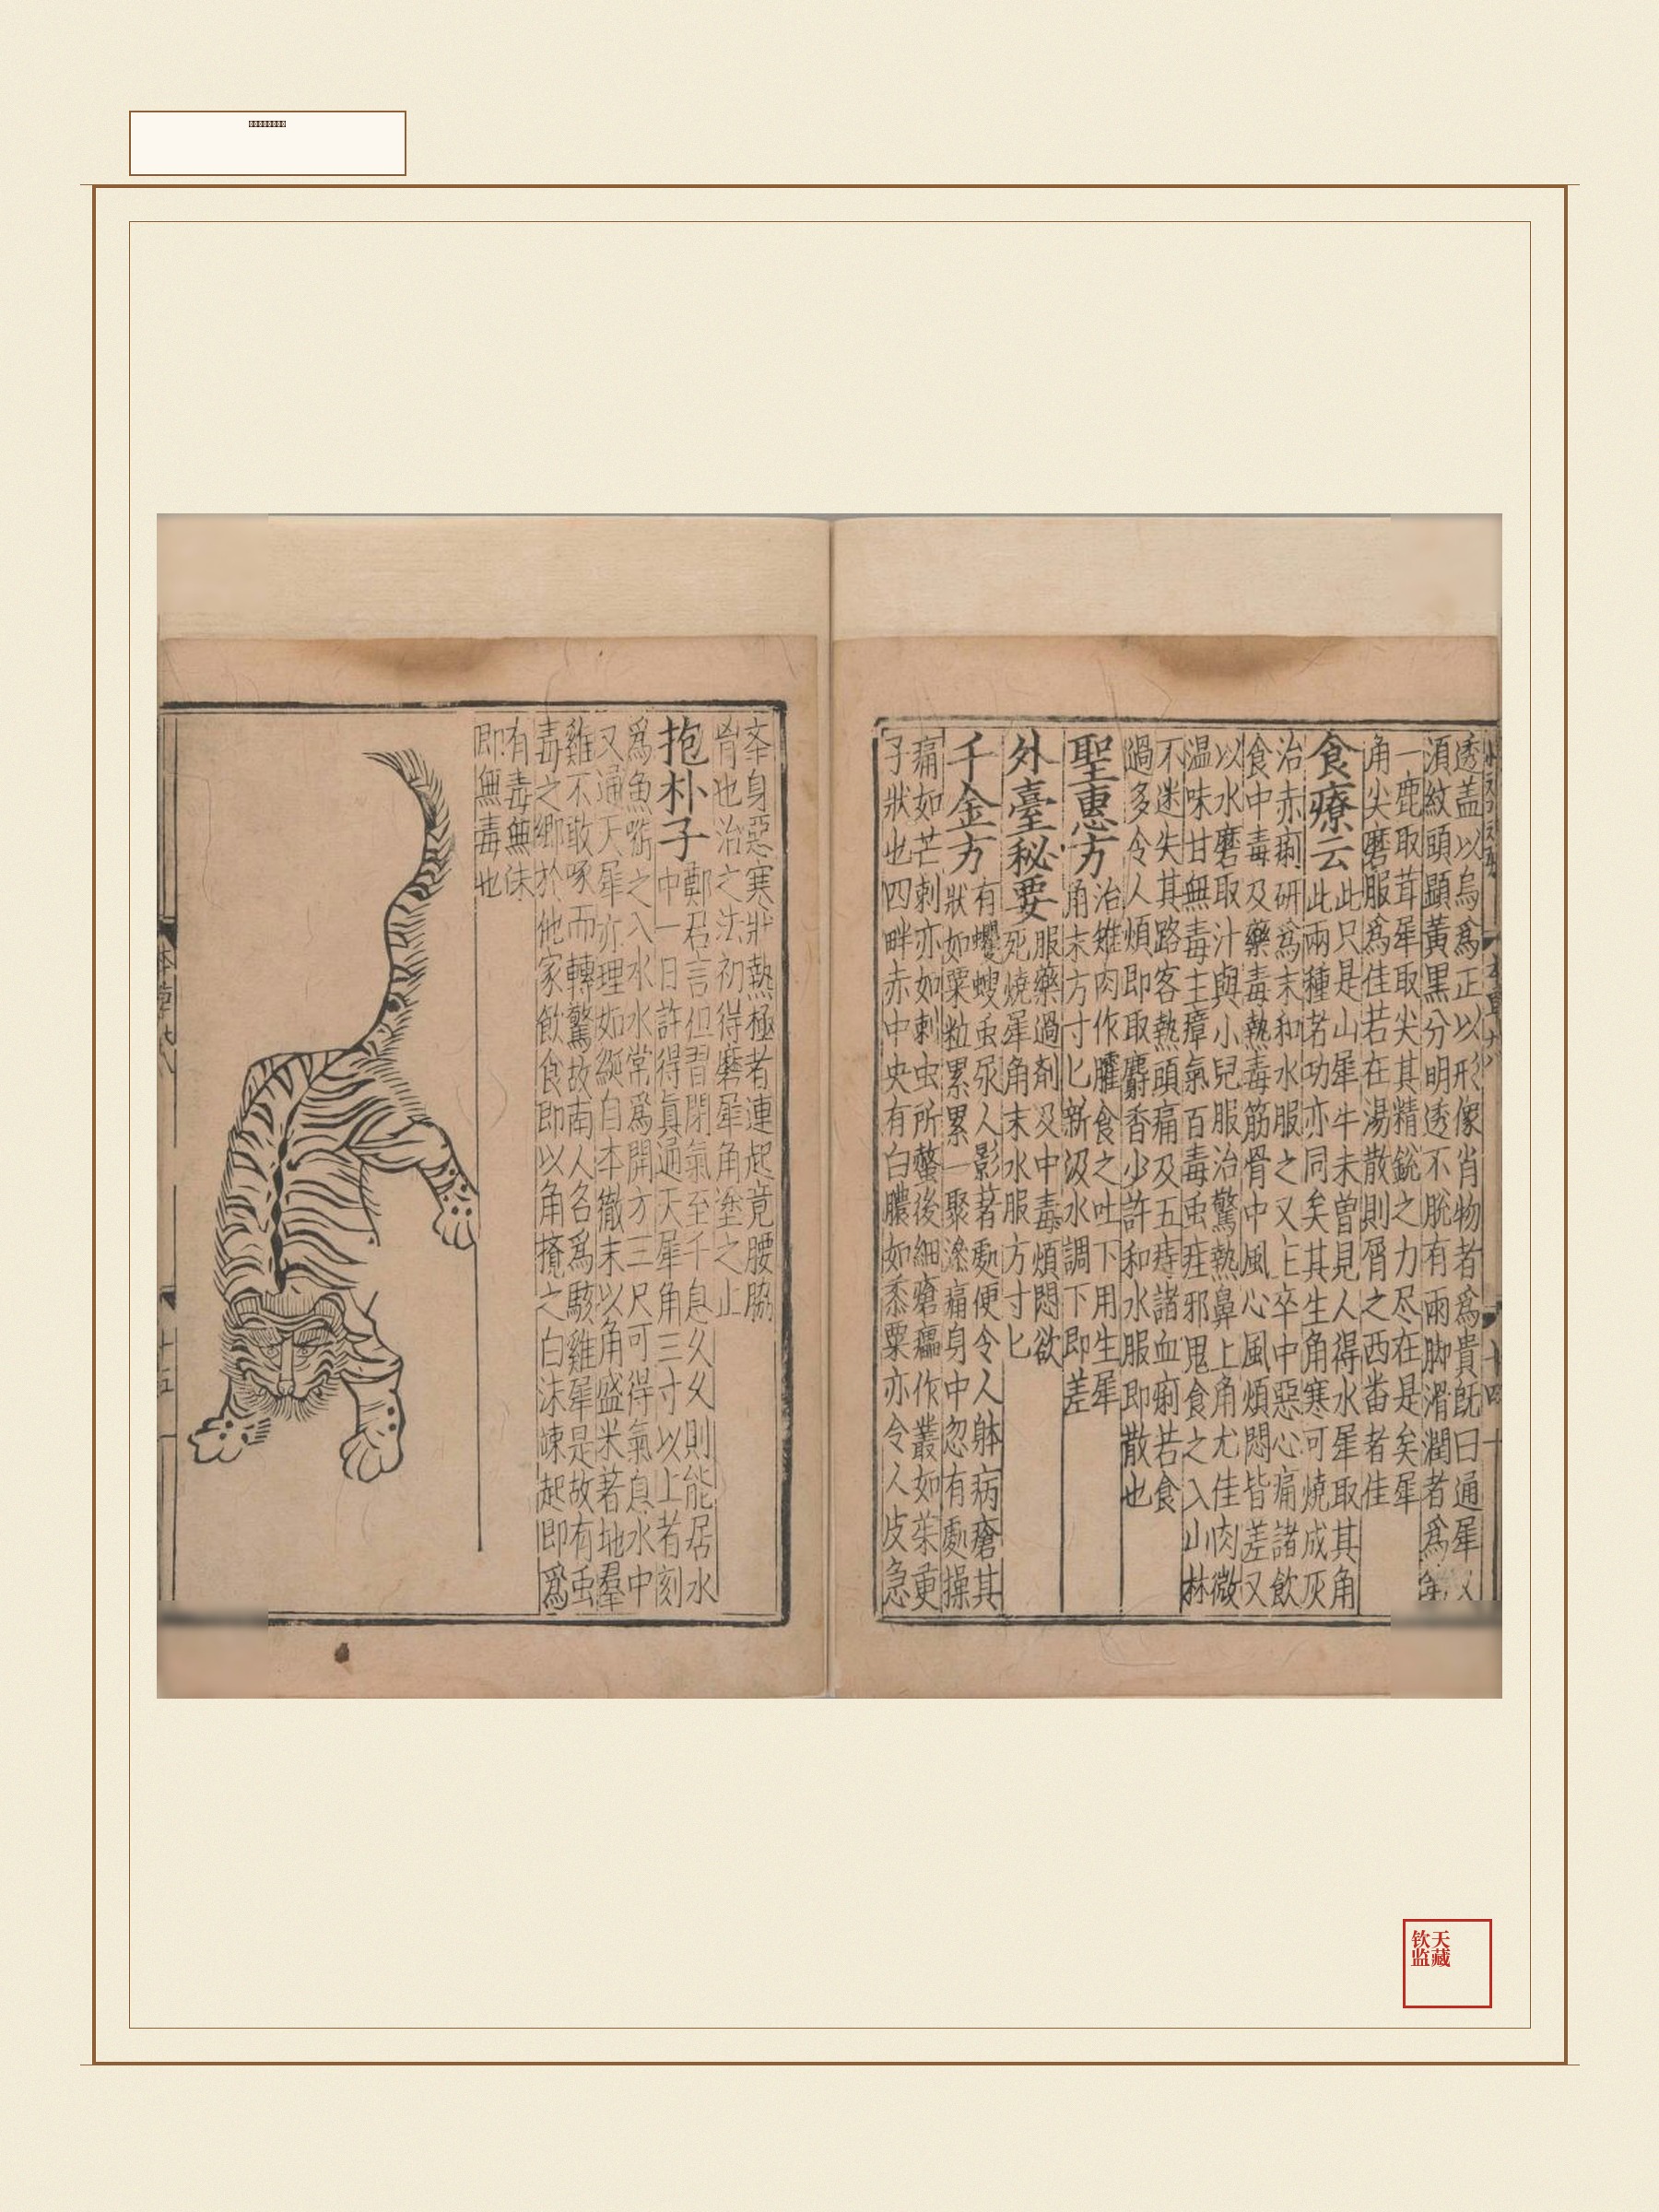 透盖以烏爲正以形像肖物者爲貴旣曰通犀又
湏紋頭顯黃黒分明透不脫有兩脚滑潤者爲第
一鹿取茸犀取尖其精銳之力尽在是矣犀
角尖磨服爲佳若在湯散則屑之西畨者佳
食療云 此只是山犀牛未曽見人得水犀取其角
此兩種若功亦同矣其生角寒可燒成灰
治赤痢研爲末和水服之又主卒中惡心痛諸飲
食中毒及藥毒熱毒筋骨中風心風煩悶皆差又
以水磨取汁與小兒服治驚熱鼻上角尤佳肉微
温味甘無毒主瘴氣百毒䖝疰邪鬼食之入山林
不迷失其路客熱頭痛及五痔諸血痢若食
過多令人煩即取麝香少許和水服即散也
聖惠方 治雉肉作臛食之吐下用生犀
角末方寸匕新汲水調下即差
外臺秘要 服藥過剤及中毒煩悶欲
死燒犀角末水服方寸匕
千金方 有蠼螋䖝尿人影著處便令人躰病瘡其
狀如粟粒累累一聚滲痛身中忽有處操
痛如芒刺亦如刺虫所螫後細瘡作叢如茱萸
子狀也四畔赤中央有白膿如黍粟亦令人皮急
夲身惡寒壯熱極者連起竟腰脇
胷也治之法初得磨犀角塗之止
抱朴子 鄭君言但習閉氣至千息乆乆則能居水
中一日許得眞通天犀角三寸以上者刻
爲魚㗸之入水水常爲開方三尺可得氣息水中
又通天犀亦理如綖自本徹末以角盛米著地羣
雞不敢啄而轉驚故南人名爲駭雞犀是故有䖝
毒之鄉於他家飲食即以角攪之白沫竦起即爲
有毒無沫
即無毒也
钦天
监藏